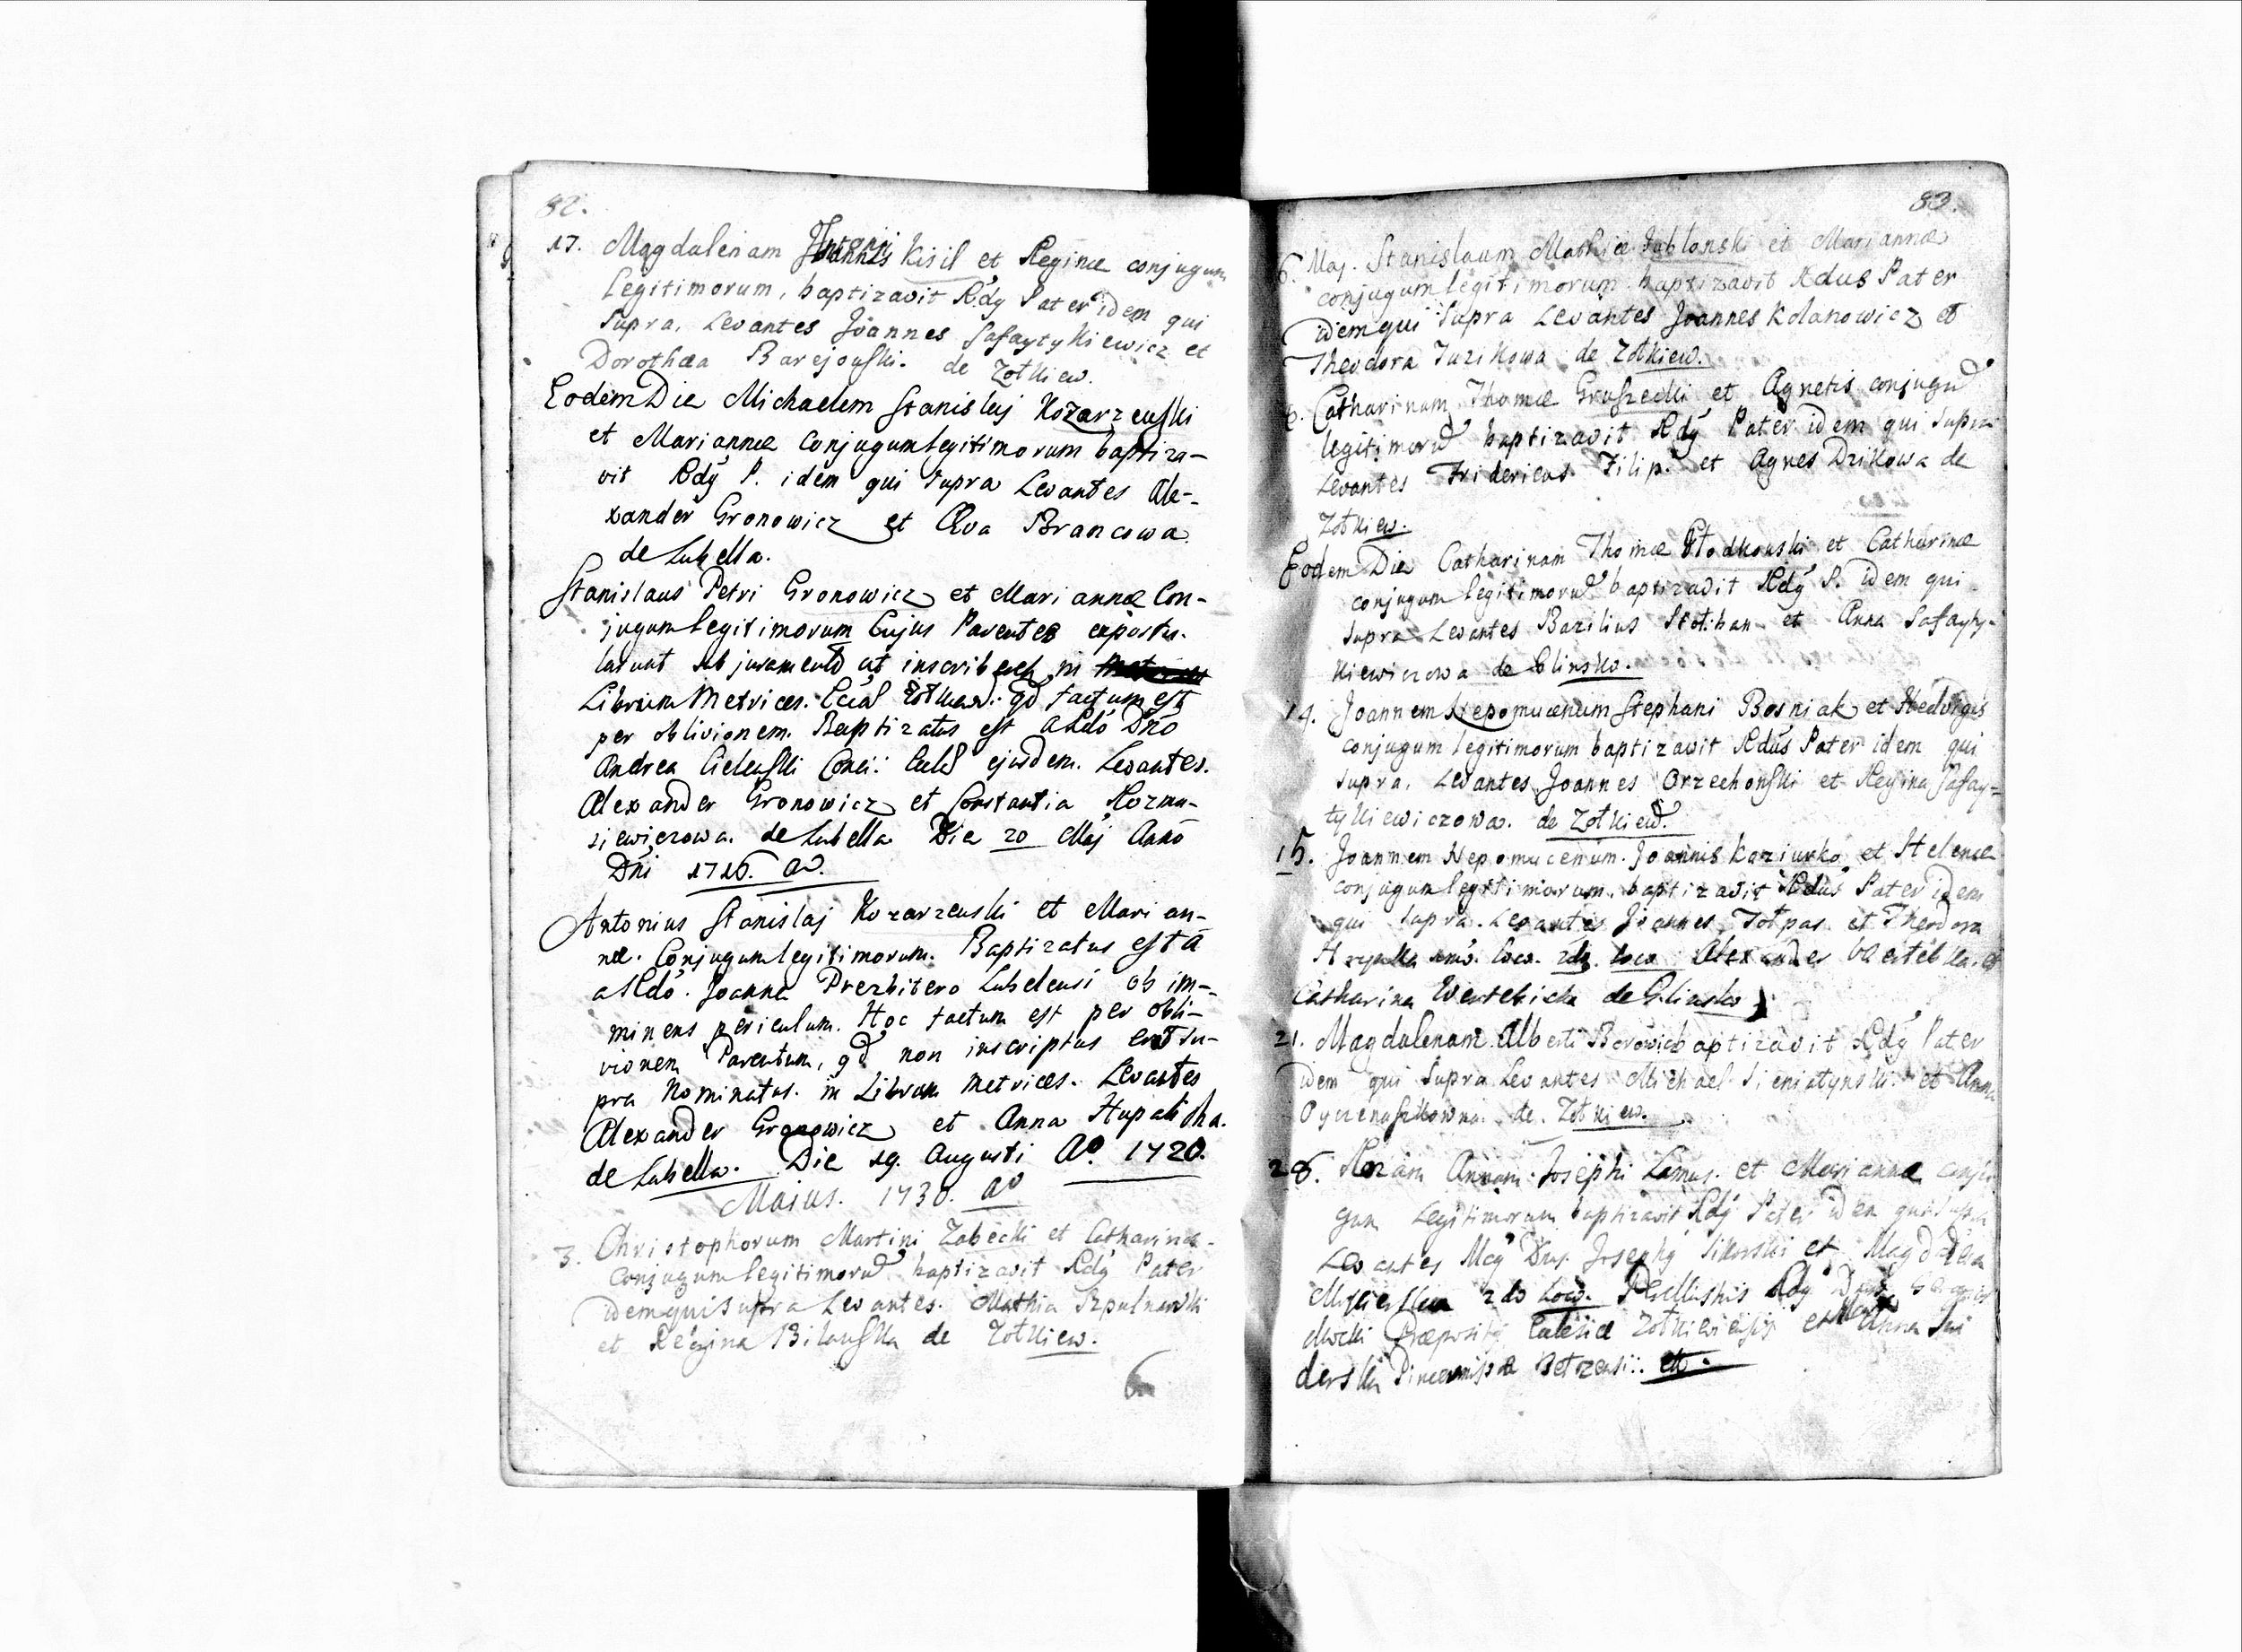 82.
17. Magdalenam Antonii Kisil et Reginæ conjugum
Legitimorum, baptizavit Rdy Pater idem qui
supra. Levantes Joannes Safaytykiewicz et
Dorothæa Barejouski. de Zołkiew.
Eodem Die Michaelem Stanislaj Kozarzeuski
et Mariannæ Conjugum legitimorum baptiza-
vit Rdy P. idem qui supra Levantes Ale-
xander Gronowicz et Eva Brancowa
de Lubella.
Stanislaus Petri Gronowicz et Mariannæ Con-
jugum legitimorum Cujus Parentes expostu-
larunt sub juramento ut inscriberetur in
Librum Metrices. Eccl Zołkiew. qd factum est
per oblivionem. Baptizatus est a Rdo Dno
Andrea Cieleuski ejusdem. Levantes.
Alexander Gronowicz et Constantia Kozmi-
ziewiczowa. de Lubella Die 20 Maj Anno
Dni 1716.
Antonius Stanislaj Kozarzeuski et Marian-
næ. Conjugum legitimorum. Baptizatus est a
a Rdo. Joanne Prezbitero Lubelensi ob im-
minens periculum. Hoc factum est per obli-
vionem Parentum, qd non inscriptus erat su-
pra Nominatus. in Librum Metrices. Levantes
Alexander Gronowicz et Anna
de Lubella. Die 19. Augusti Ao. 1720.
Maius. 1730. ao
3. Christophorum Martini Zabecki et Catharinæ.
Conjugum legitimoru baptizavit Rdy Pater
idem qui supra Levantes. Mathia Szpulnarski
et Regina Bilauska de Zołkiew.
83.
6 Maj. Stanislaum Mathiæ Jablonski et Mariannæ
conjugum legitimorum baptizavit Rdus Pater
idem qui supra Levantes Joannes Kolanowicz et
Theodora Juzikowa de Zołkiew.
Catharinam Thomæ Gruszecki et Agnetis conjugu
legitimoru baptizavit Rdy Pater idem qui supra
Levantes Fridericus Filip. et Agnes Dzikowa de
Zołkiew.
Eodem Die Catharinam Thomæ et Catharinæ
conjugum legitimoru baptizavit Rdy P. idem qui
supra Levantes Bazilius et Anna Safayty-
kiewiczowa de Glinsko.
14. Joannem Nepomucenum Stephani Bosniak et Hedvigis
conjugum legitimorum baptizavit Rdus Pater idem qui
supra. Levantes Joannes Orzechouski et Regina Safay-
tykiewiczowa. de Zołkiew.
15. Joannem Nepomucenum. Joannis Kaziurko et Helenæ
conjugum legitimorum. baptizavit Rdus Pater idem
qui supra. Levantes Joannes Tołpas et Theodora
loco. 2do. loco Alexander
Catharina Wertebicka de Glinsko
21. Magdalenam Alberti Borowic baptizavit Rdy Pater
idem qui supra Levantes Michael Sieniatynski et Anna
de Zołkiew.
28. Rozam Annam Josephi Lamus. et Mariannæ conju
gum Legitimorum baptizavit Rdy Pater idem qui supra
Levantes Mag Dns. Josephy Sikorski et Magdalena
2do Loco. Rdy
Mocki Præposity Ecclesiæ Zołkieviensis et Anna